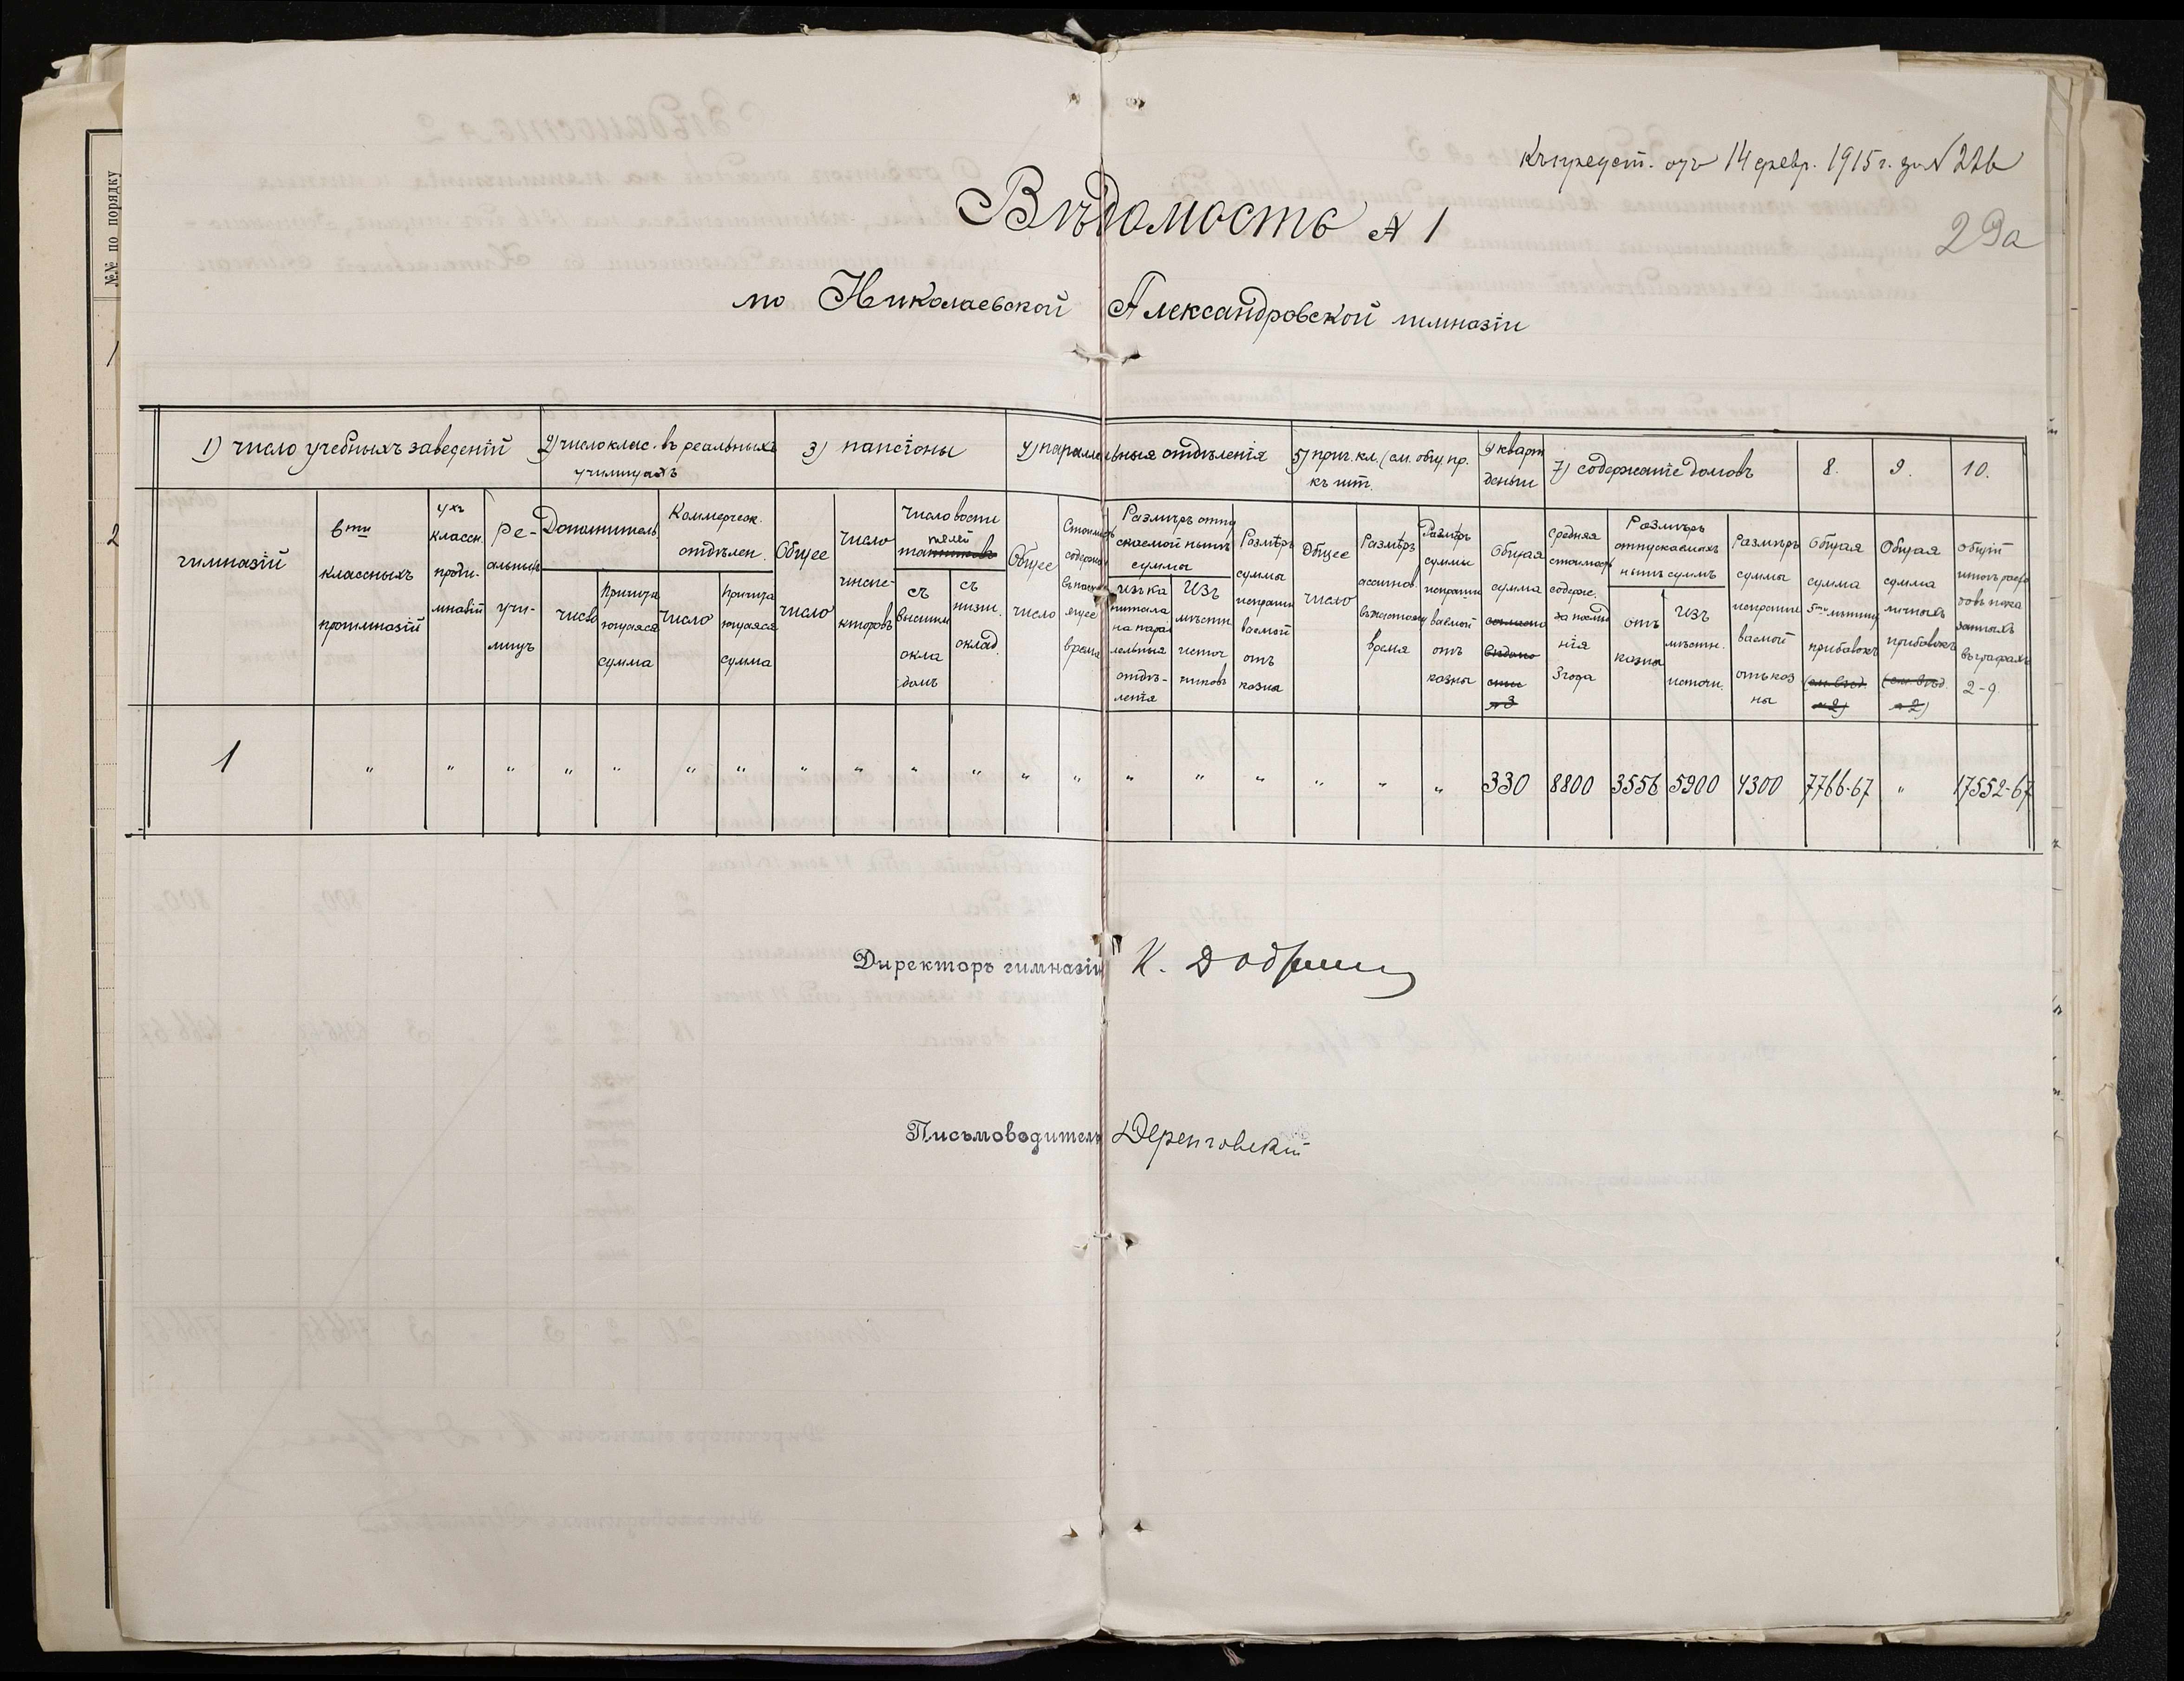 №№ по порядку
1
2
Къ предст. отъ 14 февр. 1915 г. за № 226
29а
Вѣдомость № 1
по Николаевской Александровской гимназіи
1) число учебныхъ заведеній
2) число клас. въ реальныхъ
училищахъ
3) пансіоны
4) параллельныя отдѣленія
5) приг. кл. (см. общ. пр.
къ шт.
6) кварт
деньги
7) содержаніе домовъ
8.
9.
10.
гимназій
6ти
классныхъ
прогимназій
4хъ
классн.
проги-
мназій
Ре-
альныхъ
учи-
лищъ
Дополнитель.
число
Причита
ющаяся
сумма
Коммерческ.
отдѣлен.
число
Причита
ющаяся
сумма
Общее
число
Число
инспе-
кторовъ
Число воспи
телей
съ
высшим
окла
домъ
съ
низш.
оклад.
Общее
число
Стоимость
содержан
въ насто
ящее
время
Размѣръ отпу
скаемой нынѣ
суммы
изъ ка
питала
на парал
лельныя
отдѣ-
ленія
Изъ
мѣстн.
источ
никовъ
Размѣръ
суммы
испраши
ваемой
отъ
казны
Общее
число
Размѣръ
ассигнов.
въ настоящ
время
Размѣръ
суммы
испраши
ваемой
отъ
казны
Общая
сумма
согласно
вѣдомо
сти
№ 3
Средняя
стоимость
содерже.
за послѣд
нія
3 года
Размѣръ
отпускаемыхъ
нынѣ суммъ
отъ
казны
изъ
мѣстн.
источн.
Размѣръ
суммы
испраши
ваемой
отъ каз
ны
Общая
сумма
5ти лѣтних
прибавокъ
(см. вѣд.
№ 2)
Общая
сумма
личныхъ
прибавокъ
(см. вѣд.
№ 2)
общій
итогъ расхо
довъ пока
занныхъ
въ графахъ
2-9.
1 " " " " " " " " " " " " " " " " " " " 330 8800 3556 5900 4300 7766-67 " 17552-67
Директоръ гимназіи К. Добр
Письмоводитель Деренговскій